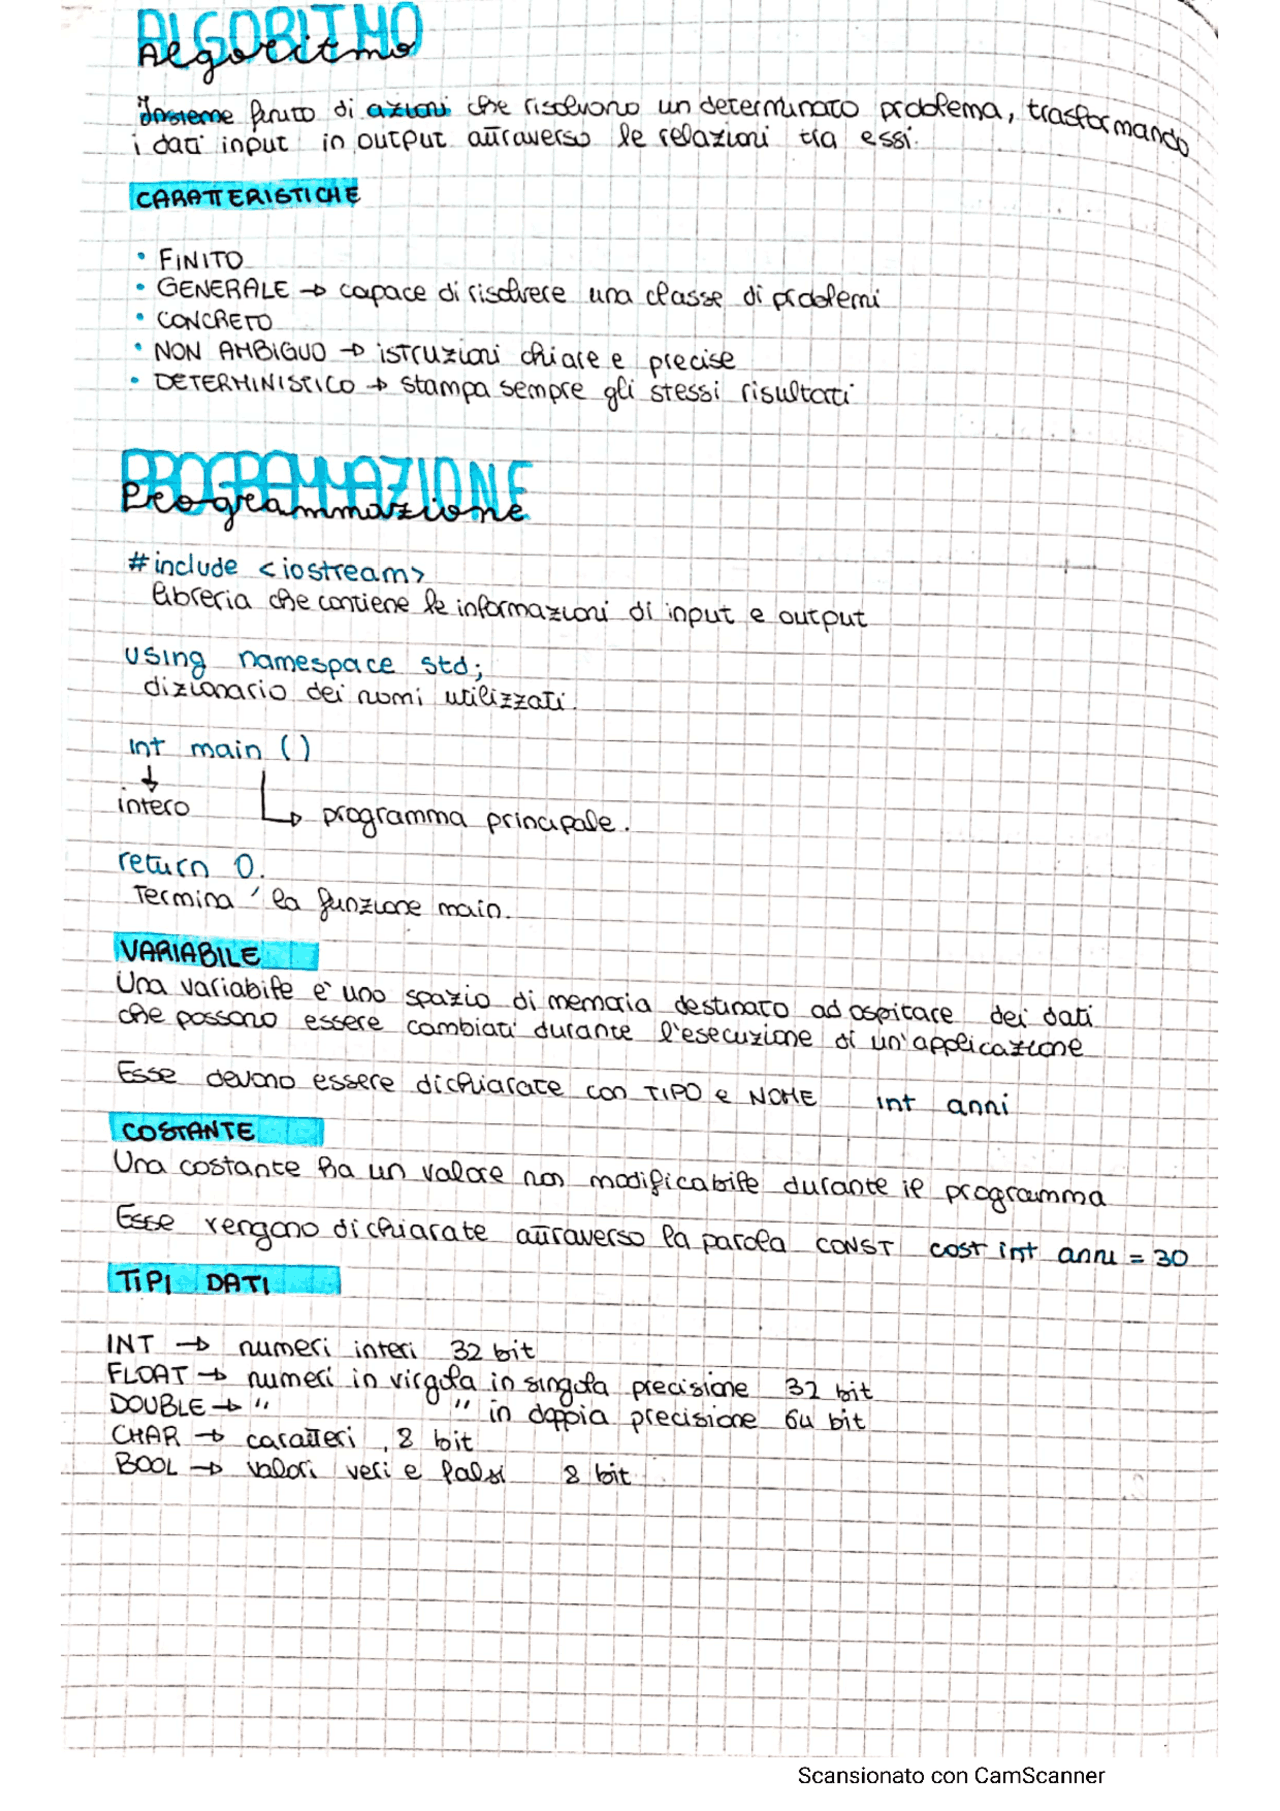 ALGORITMO
Algoritmo
Insieme finito di azioni che risolvono un determinato problema, trasformando
i dati input in output attraverso le relazioni tra essi.
CARATTERISTICHE
• FINITO
• GENERALE → capace di risolvere una classe di problemi
• CONCRETO
• NON AMBIGUO → istruzioni chiare e precise
• DETERMINISTICO → stampa sempre gli stessi risultati
PROGRAMMAZIONE
Programmazione
#include <iostream>
libreria che contiene le informazioni di input e output
using namespace std;
dizionario dei nomi utilizzati.
int main ()
intero
programma principale.
return 0.
Termina la funzione main.
VARIABILE
Una variabile è uno spazio di memoria destinato ad ospitare dei dati
che possono essere cambiati durante l'esecuzione di un'applicazione
Esse devono essere dichiarate con TIPO e NOME int anni
COSTANTE
Una costante ha un valore non modificabile durante il programma
Esse vengono dichiarate attraverso la parola CONST cost int anni = 30
TIPI DATI
INT → numeri interi 32 bit
FLOAT → numeri in virgola in singola precisione 32 bit
DOUBLE → " " in doppia precisione 64 bit
CHAR → caratteri, 8 bit
BOOL → valori veri e falsi 8 bit
Scansionato con CamScanner